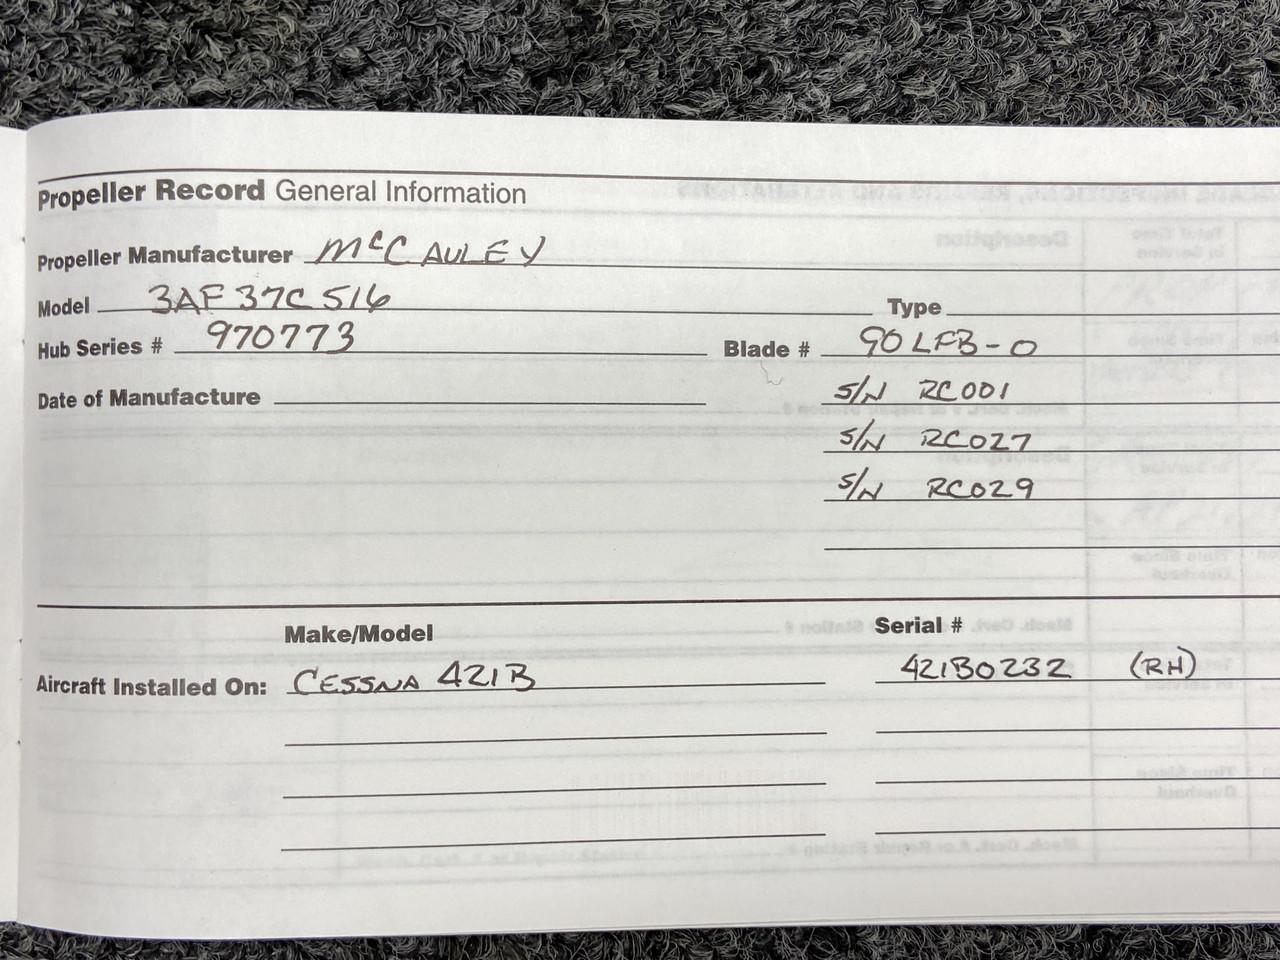 Propeller Record General Information
Propeller Manufacturer McCAULEY
Model 3AF37C516 Type
Hub Series # 970773 Blade # 90LFB-0
Date of Manufacture S/N RC001
S/N RC027
S/N RC029
Make/Model Serial #
Aircraft Installed On: CESSNA 421B 421B0232 (RH)